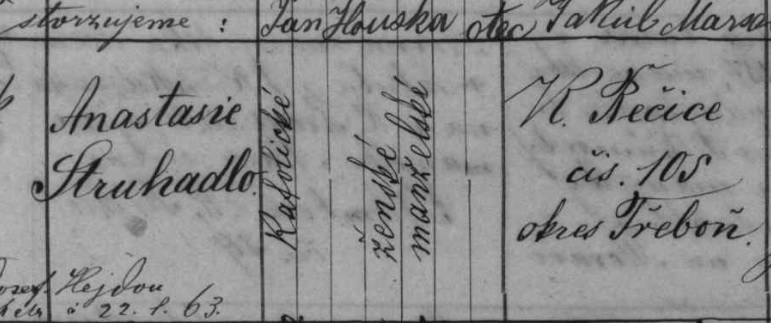 stvrzujeme : Jan Houska otec Jakub
Anastasie
Struhadlo.
Katolické
ženské
manželské
K. Řečice
čís. 105
okres Třeboň.
Hejdou
22. 63.